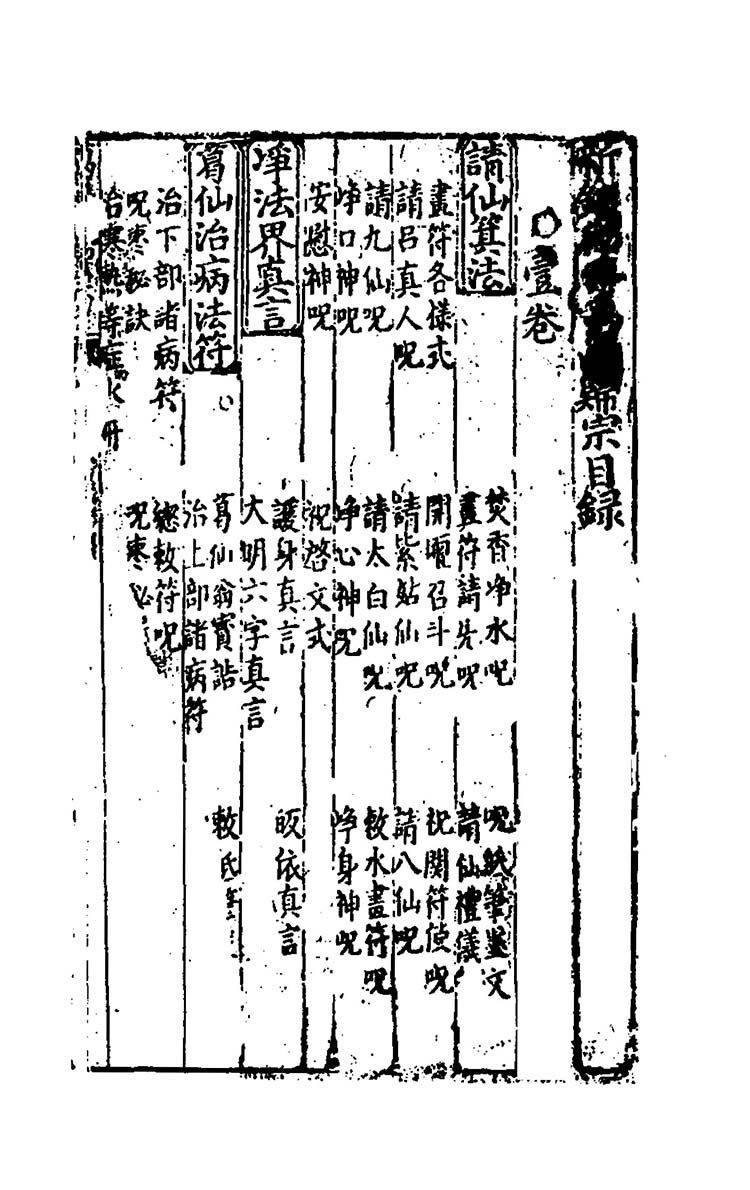 新宗目録
壹卷
請仙箕法 焚香净水呪 呪紙筆墨文
畫符各樣式 畫符請先呪 請仙禮儀
請吕真人呪 開壇召斗呪 祝関符使呪
請九仙呪 請紫姑仙呪 請八仙呪
净口神呪 請太白仙呪 敕水畫符呪
安慰神呪 净心神呪 净身神呪
祝啓文式
净法界真言 護身真言 皈依真言
大明六字真言
葛仙治病法符 葛仙翁寳誥 敕
治下部諸病符 治上部諸病符
呪棗秘訣 總敕符呪
治寒熱等症 呪棗